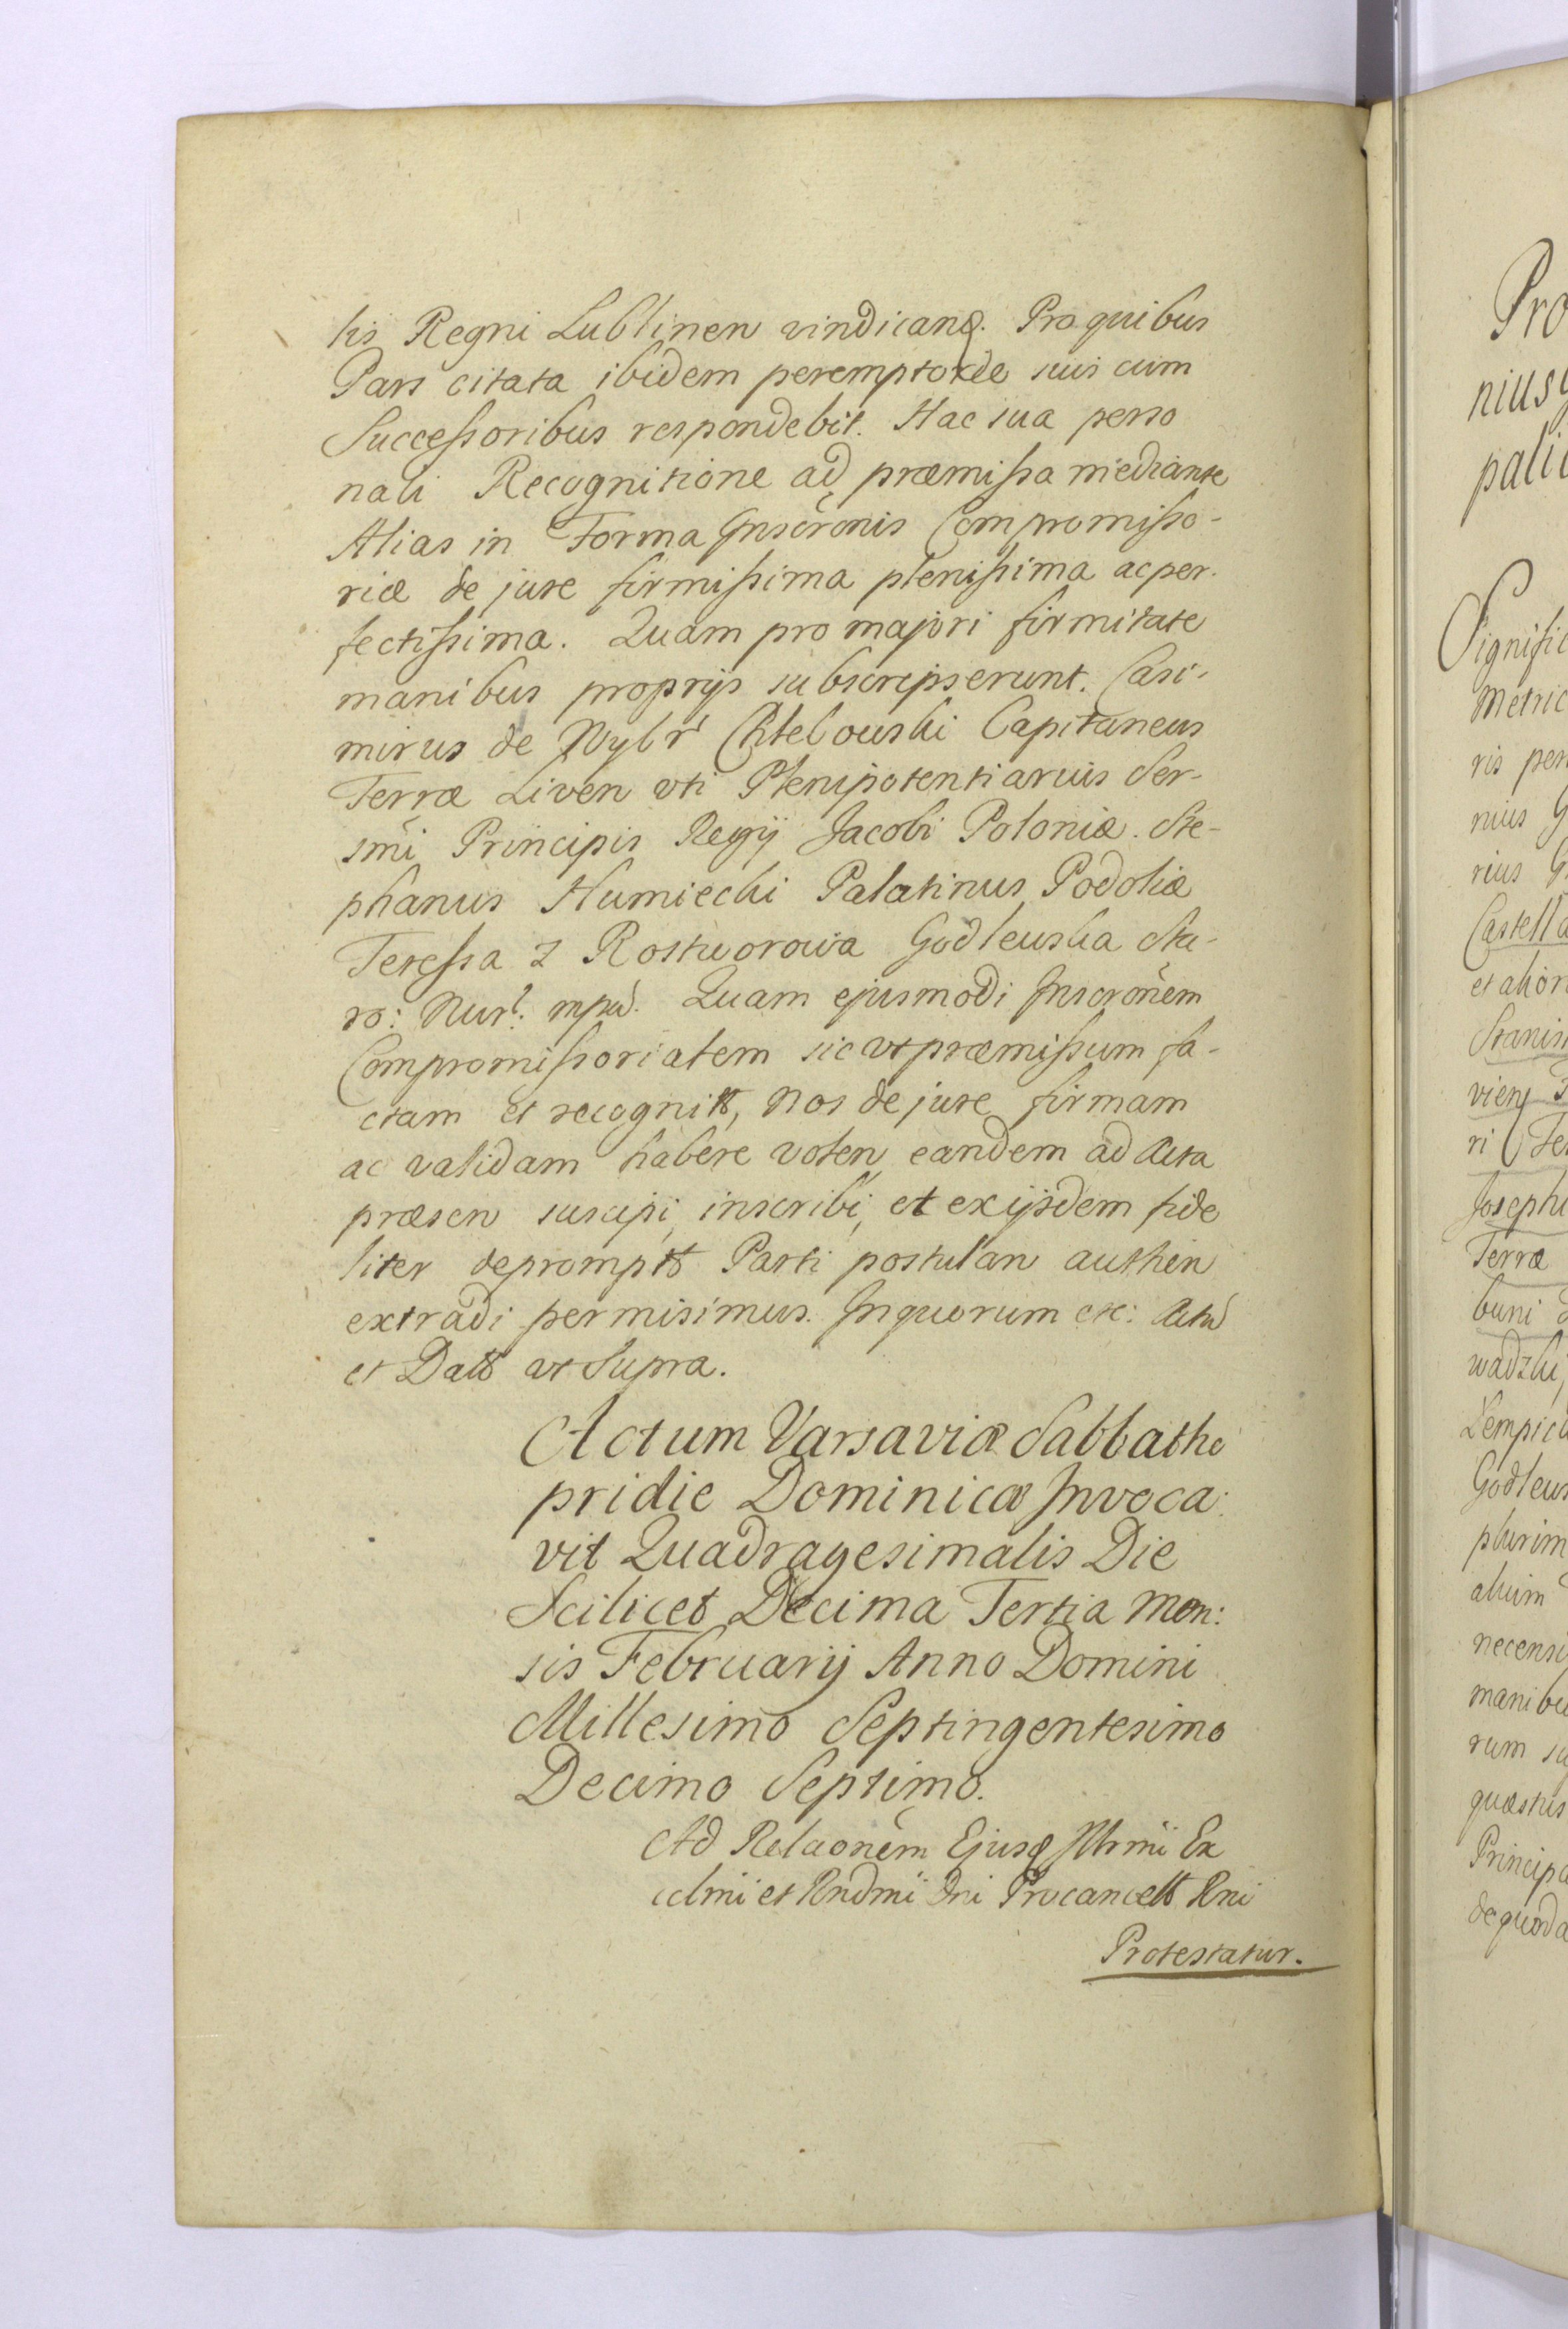 lis Regni Lublinen vindicand. Pro quibus
Pars citata ibidem peremptorie suis cum
Successoribus respondebit. Hac sua perso
nali Recognitione ad præmissa mediante
Alias in Forma Inscrōnis Compromisso-
riæ de jure firmissima plenissima ac per-
fectissima. Quam pro majori firmitate
manibus proprijs subscripserunt. Casi-
mirus de Wybr Chlebowski Capitaneus
Terræ Liven uti Plenipotentiarius Ser-
smi Principis Regij Jacobi Poloniæ. Ste-
phanus Humiecki Palatinus Podoliæ
Teressa z Rostworowa Godlewska Sta-
ro: Nur: mpd. Quam ejusmodi Inscronem
Compromissorialem sic ut præmissum fa-
ctam et recognitt, Nos de jure firmam
ac validam habere volen eandem ad Acta
præsen suscipi, inscribi, et ex ijsdem fide
liter deprompt Parti postulan authen
extradi permisimus. In quorum etc: Actu
et Datt ut Supra.
Actum Varsaviæ Sabbatho
pridie Dominicæ Invoca:
vit Quadragesimalis Die
Scilicet Decima Tertia Men:
sis Februarij Anno Domini
Millesimo Septingentesimo
Decimo Septimo.
Ad Relaonem Ejusd Illrmi Ex
celmi et Rndmi Dni Procancell Rni
Protestatur.
Pro
nius
pali
Signific
Metric
ris per
nius G
rius
Castella
et alior
Stanis
vien
ri Ter
Joseph
Terræ
buni
wadzki,
Lempic
Godlews
plurim
alium
necensi
manibu
rum su
quæstus
Principa
de quoda